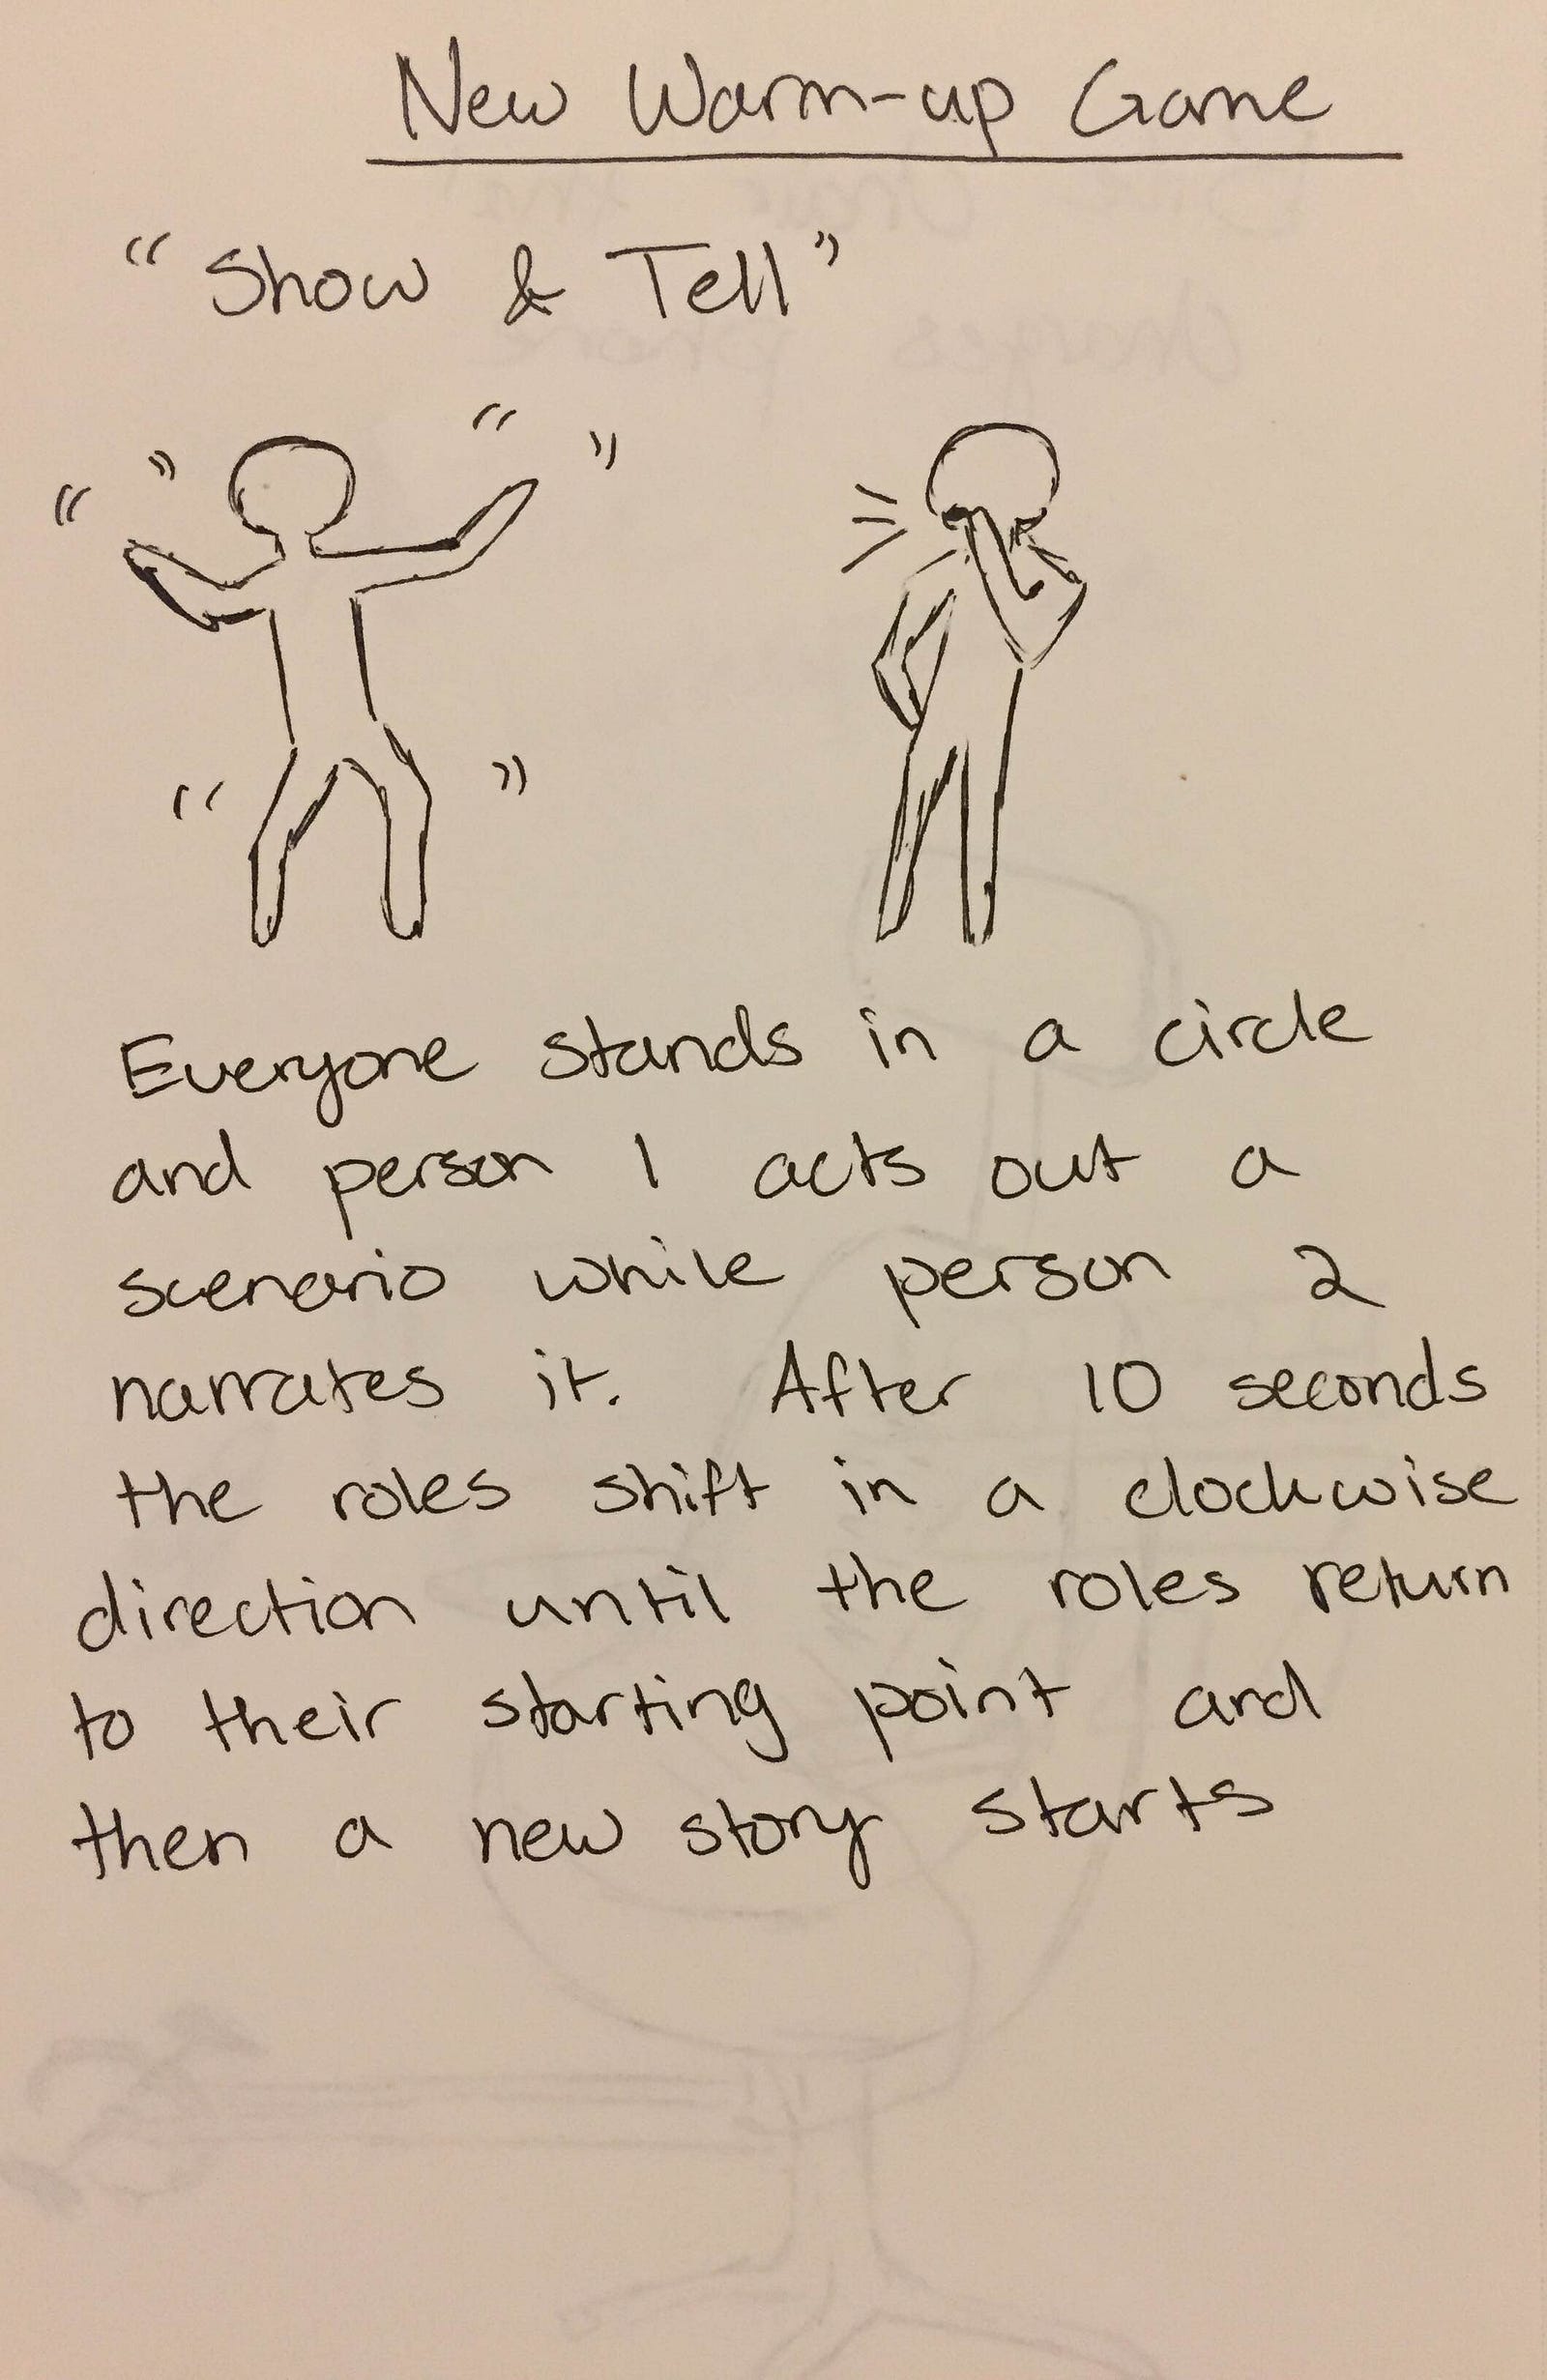 New Warm-up Game
"Show & Tell"
Everyone stands in a circle
and person 1 acts out a
scenario while person 2
narrates it. After 10 seconds
the roles shift in a clockwise
direction until the roles return
to their starting point and
then a new story starts